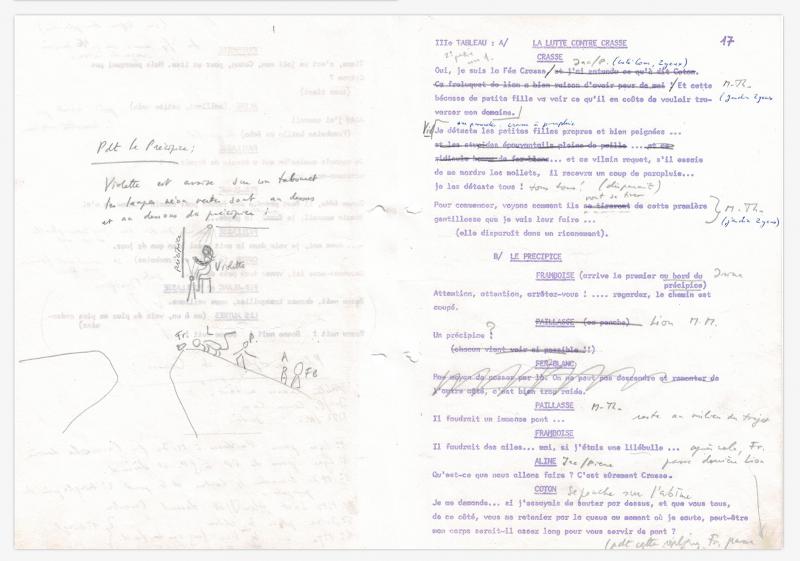 Pdt le Précipice :
Violette est assise sur un tabouret
les lampes néon verte sont au dessus
et au dessous du précipice !
précipice
Violette
Fr.
L
P.
A
B
FB
17
IIIe TABLEAU : A/ LA LUTTE CONTRE CRASSE
CRASSE
Oui, je suis la Fée Crasse/ et j'ai entendu ce qu'à dit Coton.
Ce freluquet de lion a bien raison d'avoir peur de moi !/ Et cette
M-Th.
bécasse de petite fille va voir ce qu'il en coûte de vouloir tra-
verser mon domaine.
Je déteste les petites filles propres et bien peignées ...
et les stupides épouvantails pleins de paille .... et ce
ridicule bonze de fer-blanc... et ce vilain roquet, s'il essaie
de me mordre les mollets, il recevra un coup de parapluie...
je les déteste tous ! tous tous ! (disparait)
vont se tirer
Pour commencer, voyons comment ils se tireront de cette première
M-Th.
gentillesse que je vais leur faire ...
(elle disparaît dans un ricanement).
B/ LE PRECIPICE
FRAMBOISE (arrive le premier au bord du
précipice)
Attention, attention, arrêtez-vous ! .... regardez, le chemin est
coupé.
PAILLASSE (se penche) Lion M.M.
Un précipice ?
(chacun vient voir si possible !!)
FER-BLANC
Pas moyen de passer par là. On ne peut pas descendre et remonter de
l'autre côté, c'est bien trop raide.
PAILLASSE M-Th.
Il faudrait un immense pont ... reste au milieu du trajet
FRAMBOISE
Il faudrait des ailes... moi, si j'étais une libellule ... après cela, Fr.
passe derrière Lion
ALINE
Qu'est-ce que nous allons faire ? C'est sûrement Crasse.
COTON se penche sur l'abîme
Je me demande... si j'essayais de sauter par dessus, et que vous tous,
de ce côté, vous me reteniez par la queue au moment où je saute, peut-être
mon corps serait-il assez long pour vous servir de pont ?
(pdt cette réplique, Fr. passe